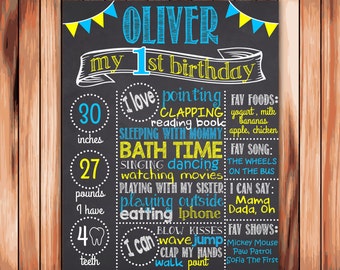 OLIVER
my 1st birthday
30
inches
27
pounds
I have
4
teeth
I love
pointing
CLAPPING
reading book
SLEEPING WITH MOMMY
BATH TIME
SINGING dancing
watching movies
PLAYING WITH MY SISTER
playing outside
eatting Iphone
I can
BLOW KISSES
wave jump
CLAP MY HANDS
walk point
FAV FOODS:
yogurt, milk
bananas
apple, chicken
FAV SONG:
THE WHEELS
ON THE BUS
I CAN SAY:
Mama,
Dada, Oh
FAV SHOWS:
Mickey Mouse
Paw Patrol
Sofia The First